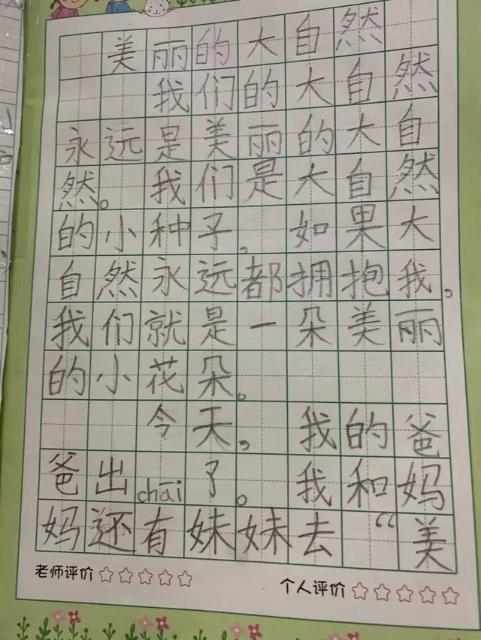 美丽的大自然
我们的大自然
永远是美丽的大自
然。我们是大自然
的小种子，如果大
自然永远都拥抱我，
我们就是一朵美丽
的小花朵。
今天，我的爸
爸出chāi了。我和妈
妈还有妹妹去“美
老师评价☆☆☆☆☆ 个人评价☆☆☆☆☆